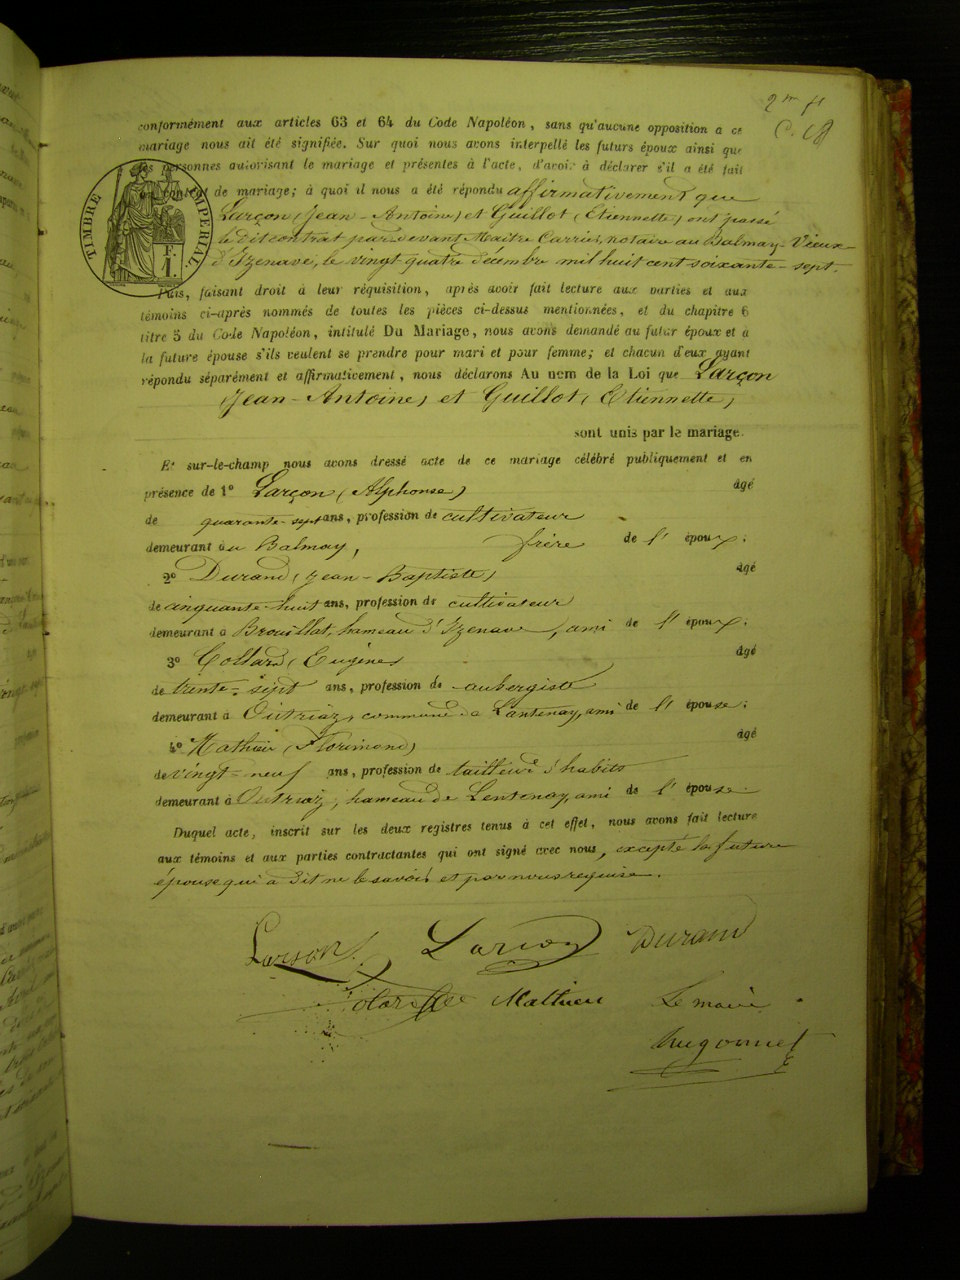 2me ft
C. 18
conformément aux articles 63 et 64 du Code Napoléon, sans qu'aucune opposition a ce
mariage nous ait été signifiée. Sur quoi nous avons interpellé les futurs époux ainsi que
les personnes autorisant le mariage et présentes à l'acte, d'avoir à déclarer s'il a été fait
contrat de mariage; à quoi il nous a été répondu affirmativement que
Larçon (Jean-Antoine) et Guillot (Etiennette) ont passé
le dit contrat par devant Maître Carrier, notaire au Balmay Vieux-
d'Izenave, le vingt quatre décembre mil huit cent soixante-sept.
TIMBRE IMPÉRIAL
F. 1.
Puis, faisant droit à leur réquisition, après avoir fait lecture aux parties et aux
témoins ci-après nommés de toutes les pièces ci-dessus mentionnées, et du chapitre 6
titre 5 du Code Napoléon, intitulé Du Mariage, nous avons demandé au futur époux et à
la future épouse s'ils veulent se prendre pour mari et pour femme; et chacun d'eux ayant
répondu séparément et affirmativement, nous déclarons Au nom de la Loi que Larçon
(Jean-Antoine) et Guillot (Etiennette)
sont unis par le mariage.
Et sur-le-champ nous avons dressé acte de ce mariage célébré publiquement et en
présence de 1° Larçon (Alphonse) âgé
de quarante-sept ans, profession de cultivateur
demeurant au Balmay, frère de l'époux;
2° Durand (Jean-Baptiste) âgé
de cinquante-huit ans, profession de cultivateur
demeurant à Brouillat, hameau d'Izenave, ami de l'époux;
3° Collard (Eugène) âgé
de trente-sept ans, profession de aubergiste
demeurant à Outriaz, commune de Lantenay, ami de l'épouse;
4° Mathieu (Florimond) âgé
de vingt-neuf ans, profession de tailleur d'habits
demeurant à Outriaz, hameau de Lentenay, ami de l'épouse
Duquel acte, inscrit sur les deux registres tenus à cet effet, nous avons fait lecture
aux témoins et aux parties contractantes qui ont signé avec nous, excepté la future
épouse qui a dit ne le savoir et par nous requise.
Larson Durand
Mathieu Le maire
Hugonnet